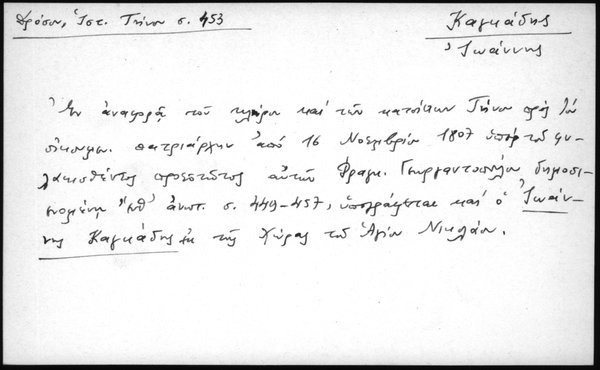 Δρόσου, Ἱστ. Τήνου σ. 453
Καγκάδης
Ἰωάννης
Ἐν ἀναφορᾷ τοῦ κλήρου καὶ τῶν κατοίκων Τήνου πρὸς τὸν
οἰκουμ. πατριάρχην ἀπό 16 Νοεμβρίου 1807 ὑπὲρ τοῦ φυ-
λακισθέντος προεστῶτος αὐτῶν Φραγκ. Γεωργαντοπούλου δημοσι-
ευομένῃ ἔνθ' ἀνωτ. σ. 449-457, ὑπογράφεται καὶ ὁ Ἰωάν-
νης Καγκάδης ἐκ τῆς Χώρας τοῦ Ἁγίου Νικολάου.